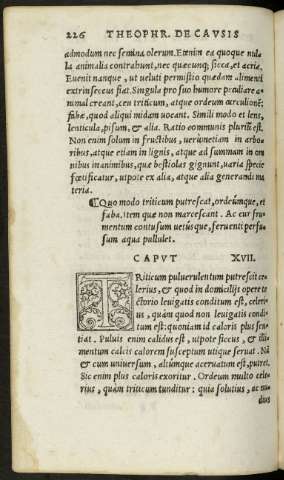 226 THEOPHR. DE CAVSIS
admodum nec semina olerum. Etenim ea quoque nul-
la animalia contrahunt, nec quæcunq; sicca, et acria.
Euenit nanque, ut ueluti permistio quædam alimenti
extrinsecus fiat. Singula pro suo humore peculiare a-
nimal creant, ceu triticum, atque ordeum curculionē:
faba, quod aliqui midam uocant. Simili modo et lens,
lenticula, pisum, & alia. Ratio communis plurīū est.
Non enim solum in fructibus, uerùmetiam in arbo
ribus, atque etiam in lignis, atque ad summam in om
nibus inanimibus, quæ bestiolas gignunt, uaria specie
fœtificatur, utpote ex alia, atque alia generandi ma
teria.
Quo modo triticum putrescat, ordeúmque, et
faba. item quæ non marcescant. Ac cur fru-
mentum contusum uetúsque, feruenti perfu-
sum aqua pullulet.
CAPVT XVII.
TRiticum puluerulentum putrescit ce-
lerius, & quod in domicilijs opere te
ctorio leuigatis conditum est, celeri-
us, quàm quod non leuigatis condi-
tum est: quoniam id caloris plus sen-
tiat. Puluis enim calidus est, utpote siccus, & illi-
mentum calcis calorem susceptum utique seruat. Nā
& cum uniuersum, altúmque aceruatum est, putret.
Sic enim plus caloris exoritur. Ordeum multo cele-
rius, quàm triticum tunditur: quia solutius, ac nu-
dius